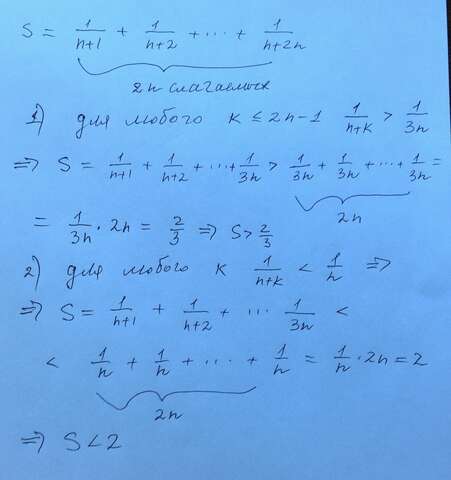 S = 1/(n+1) + 1/(n+2) + ... + 1/(n+2n)
2n слагаемых
1) для любого k ≤ 2n-1 1/(n+k) > 1/(3n)
=> S = 1/(n+1) + 1/(n+2) + ... + 1/(3n) > 1/(3n) + 1/(3n) + ... + 1/(3n) =
2n
= 1/(3n) · 2n = 2/3 => S > 2/3
2) для любого k 1/(n+k) < 1/n =>
=> S = 1/(n+1) + 1/(n+2) + ... 1/(3n) <
< 1/n + 1/n + ... + 1/n = 1/n · 2n = 2
2n
=> S < 2